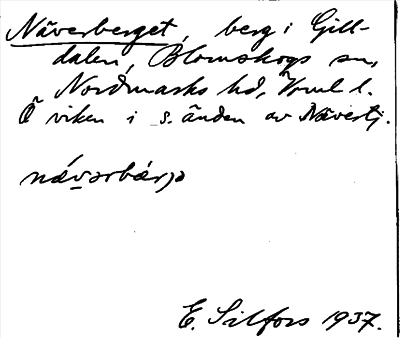 Näverberget, berg i Gill-
dalen, Blomskogs sn,
Nordmarks hd, Värml l.
Ö viken i s. änden av Nävertj.
E. Salfors 1937.